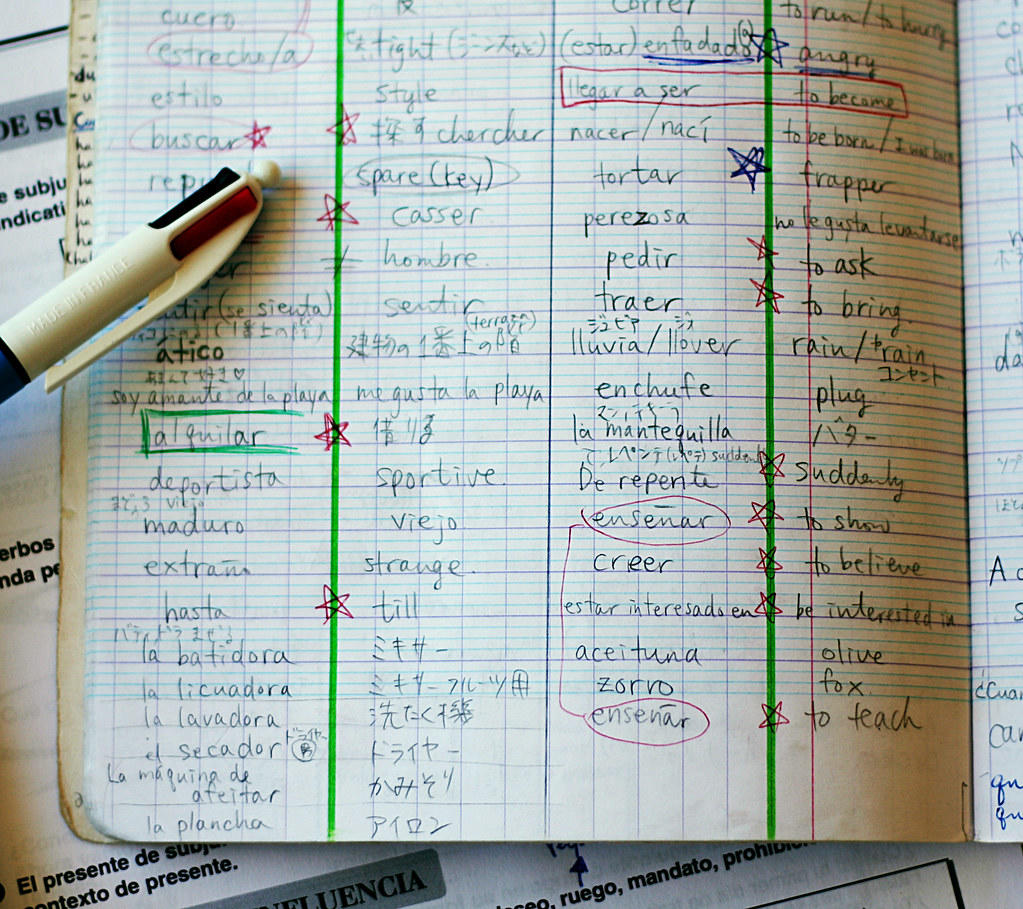 cuero
correr to run / to hurry
estrecho/a tight (ジーンズなど) (estar) enfadado(a) angry
estilo style llegar a ser to become
buscar 探す chercher nacer / nací to be born / I was born
spare (key) tortar frapper
casser perezosa no le gusta levantarse
≠ hombre. pedir to ask
(se sienta) sentir traer to bring
(terraza)
ático 建物の1番上の階 lluvia / llover rain / to rain
コンセント
soy amante de la playa me gusta la playa enchufe plug
alquilar 借りる la mantequilla バター
deportista sportive De repente suddenly
maduro viejo enseñar to show
extraño strange. creer to believe
hasta till estar interesado en be interested in
la batidora ミキサー aceituna olive
la licuadora ミキサーフルーツ用 zorro fox.
la lavadora 洗たく機 enseñar to teach
el secador ドライヤー ドライヤー
La máquina de
afeitar かみそり
la plancha アイロン
MADE IN FRANCE
DE SU
e subju
indicati
erbos
nda pe
¿Cuan
El presente de subju
contexto de presente.
NFLUENCIA
eseo, ruego, mandato, prohibi